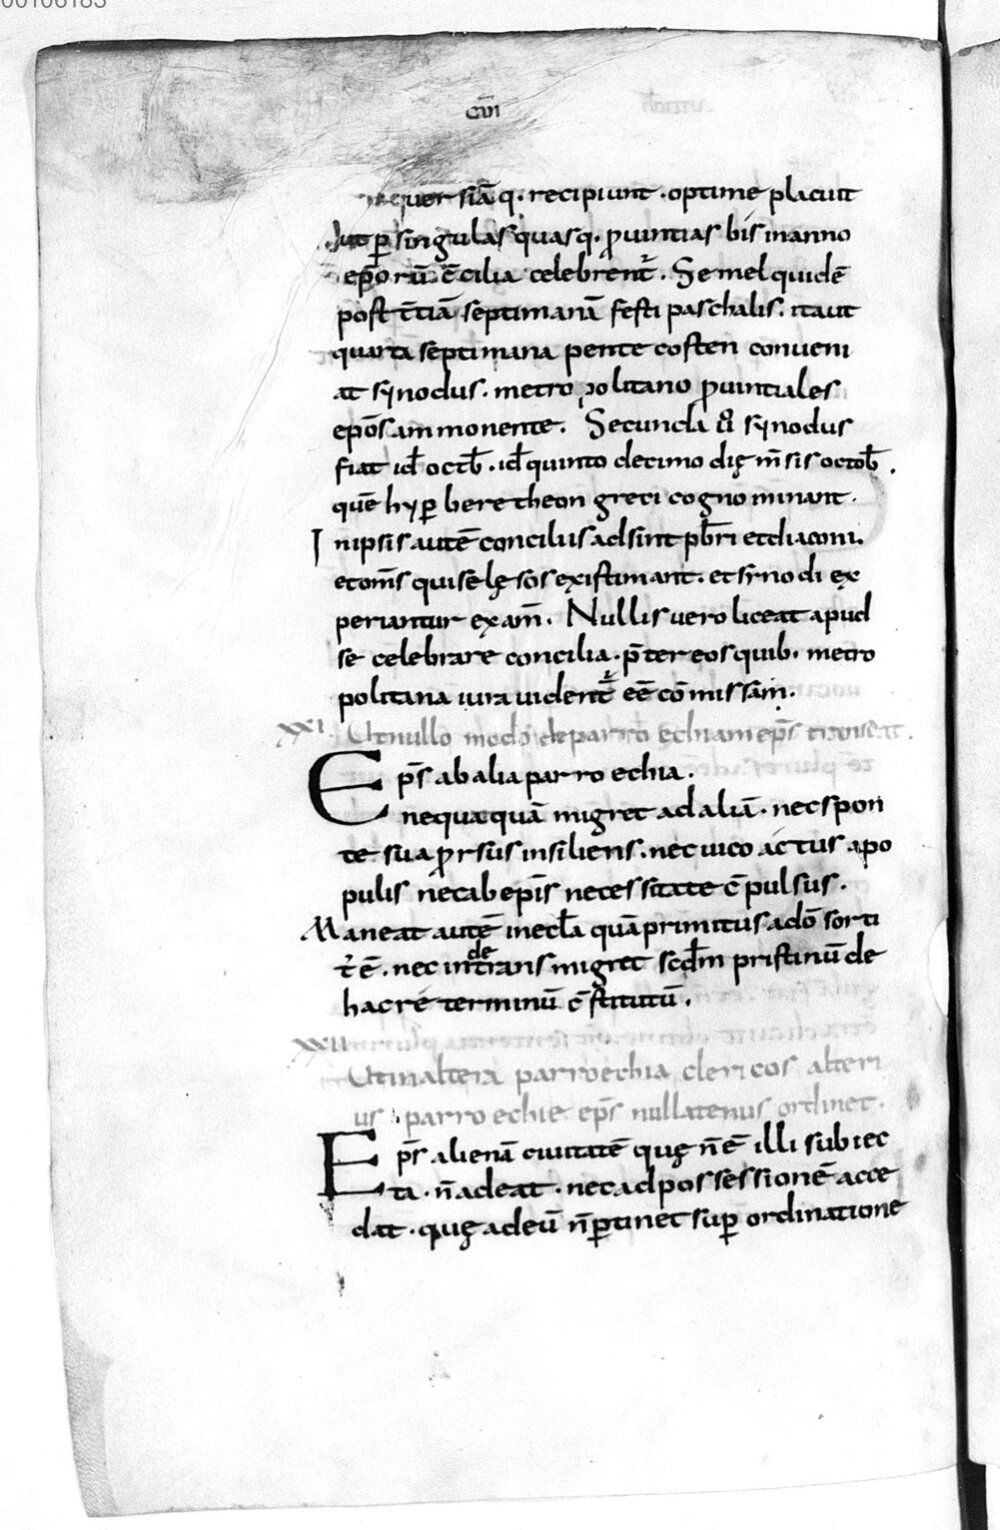 00106183
cui
uer siā q· recipiunt · optime placuit
ut p̱ singulas quasq· ꝓuintias bis in anno
epō rū c̄cilia celebrent᷑ . Se mel quidē
post t̄tiā septimanā festi paschalis · itaut
quarta septimana pente costen conueni
at synodus · metro politano ꝓuintiales
epōs ammonente . Secunda u͛ synodus
fiat id̄ octb̄ · id̄ quinto decimo dię m̄sis octob̄ .
quē hyp̱ beretheon greci cogno minant ·
Inipsis autē conciliis adsint pb̄ri etdiaconi.
etom̄s quisē lę sōs existimant · et synodi ex
periantur exam̄ . Nullis uero liceat apud
se celebrare concilia · p̄ter eos quib· metro
politana iura uident᷑ eē cōmissam .
XXI Utnullo modo deparro echiam ep̄s transeat .
Ep̄s abalia parro echia .
nequaquā migret ad aliā · nec spon
te sua ꝓrsus insiliens · nec uico actus apo
pulis nec ab ep̄is necessitate c̄pulsus ·
Maneat autē inecl̄a quā primitus adō sorti
t᷑ ē · nec in de trans migret scd̄m pristinū de
hac re terminū c̄stitutū .
XXII
Utinaltera parroechia clericos alteri
us parroechie ep̄s nullatenus ordinet .
Ep̄s alienā ciuitatē quę n̄ ē illi subiec
ta · n̄ adeat · nec ad possessionē acce
dat · quę ad eū n̄ p̱tinet sup̱ ordinatione